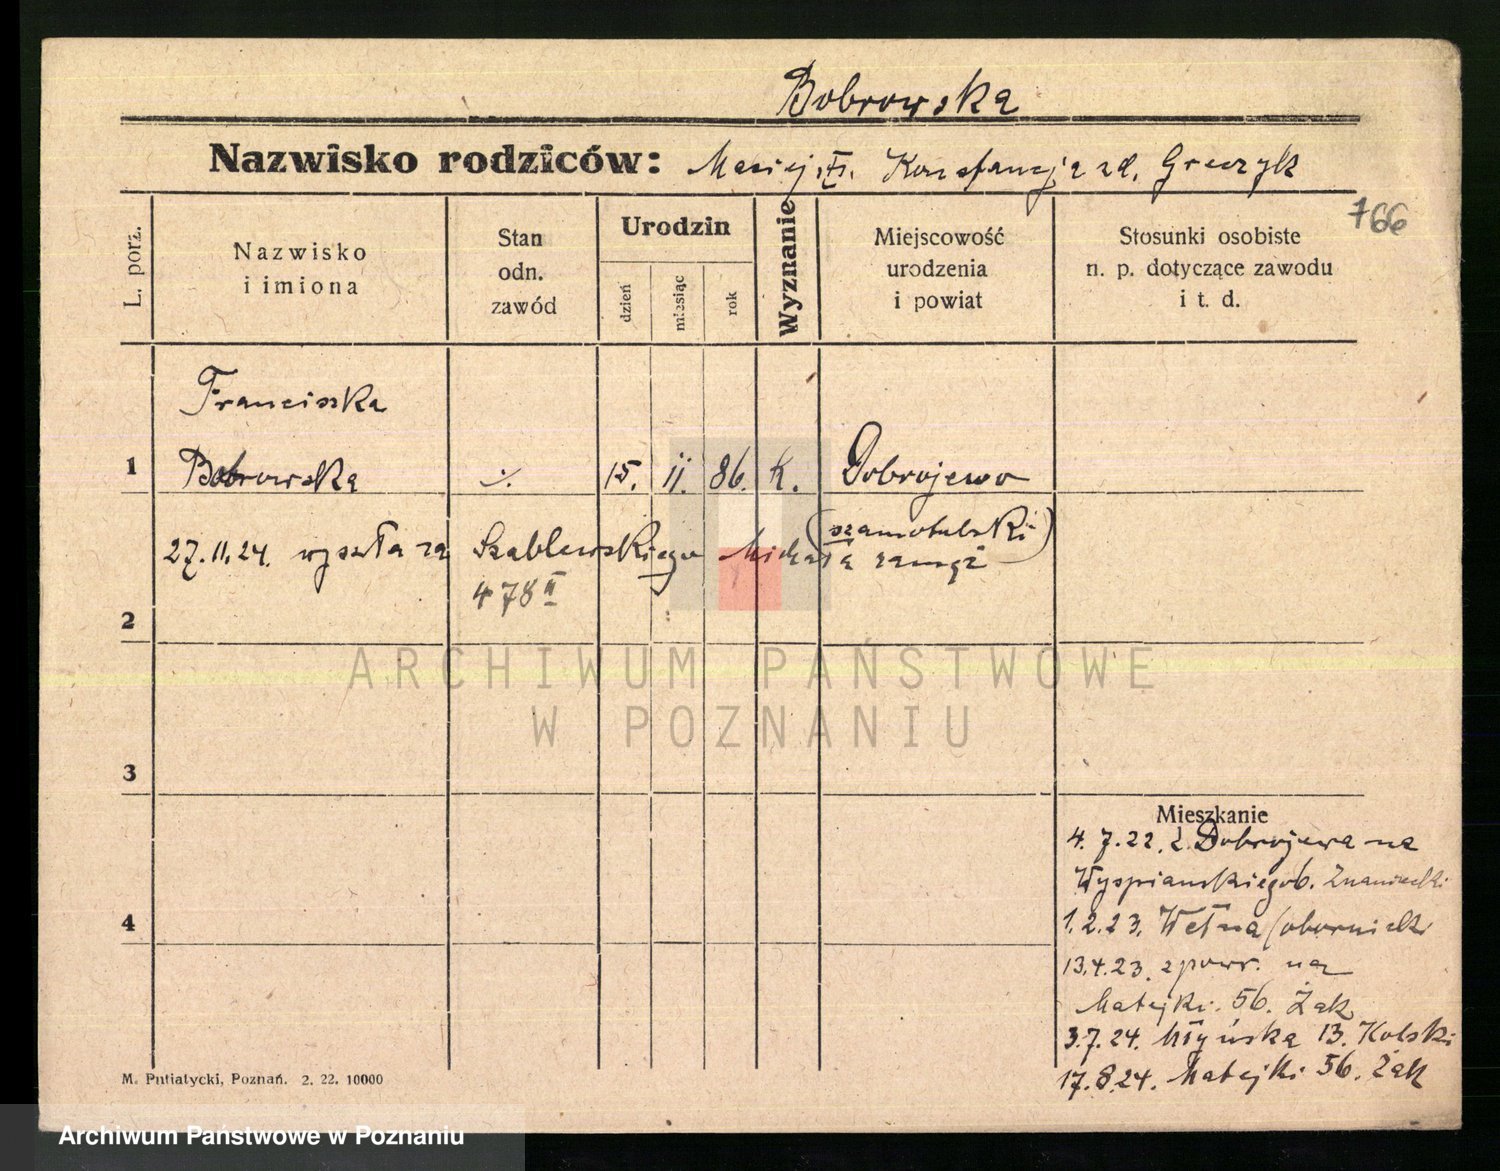 Bobrowska
Nazwisko rodziców: Maciej i Konstancja zd. Graczyk
766
L. porz.
Nazwisko
i imiona
Stan
odn.
zawód
Urodzin
dzień
miesiąc
rok
Wyznanie
Miejscowość
urodzenia
i powiat
Stosunki osobiste
n. p. dotyczące zawodu
i t. d.
Franciszka
1 Bobrowska ./. 15. 11. 86. K. Dobrojewo
(szamotulski)
27.11.24. wyszła za Szablewskiego Michała zamąż
478 II
2
ARCHIWUM PAŃSTWOWE
W POZNANIU
3
Mieszkanie
4. 7. 22. z Dobrojewa na
Wyspiańskiego 6. Znaniecki
4
1. 2. 23. Wełna (obornicki
13.4.23. zpowr. na
Matejki 56. Żak
3.7.24. Młyńska 13. Kolski
17.8.24. Matejki 56. Żak
M. Putiatycki, Poznań. 2. 22. 10000
Archiwum Państwowe w Poznaniu